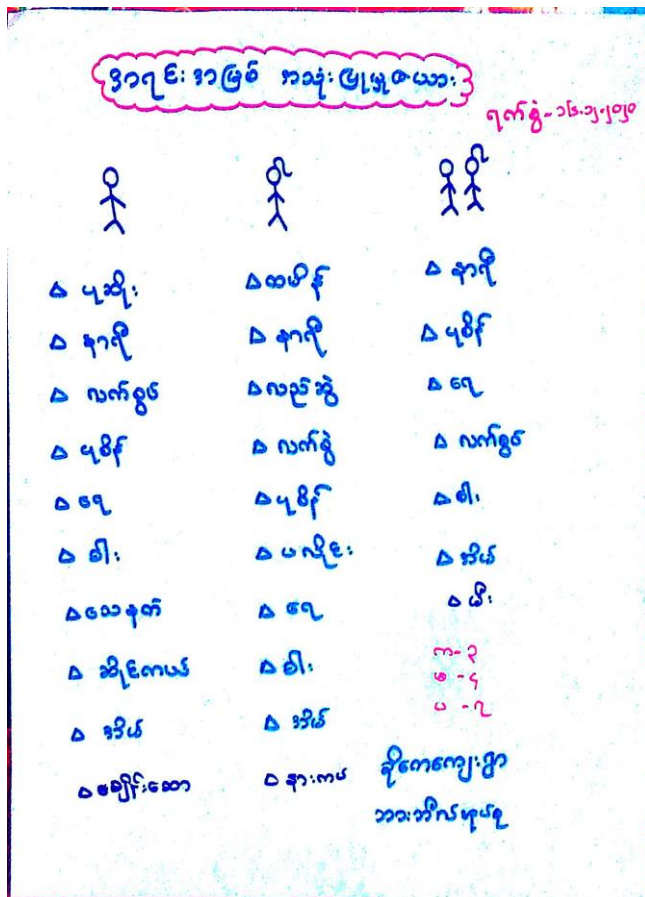 အရင်းအမြစ် အသုံးပြုမှုဇယား
ရက်စွဲ-
ပုဆိုး
နာရီ
လက်စွပ်
ပုစိန်
ရေ
ဓါး
သေနတ်
ဆိုင်ကယ်
အိမ်
ချိန်းဆော
ထမိန်
နာရီ
လည်ဆွဲ
လက်စွဲ
ပုစိန်
ပလိုင်း
ရေ
ဓါး
အိမ်
နားကပ်
နာရီ
ပုစိန်
ရေ
လက်စွပ်
ဓါး
အိမ်
မီး
က-၃
မ-၄
ပ-၇
ခိုကေကျေးရွာ
ဘားဘီလ်အုပ်စု